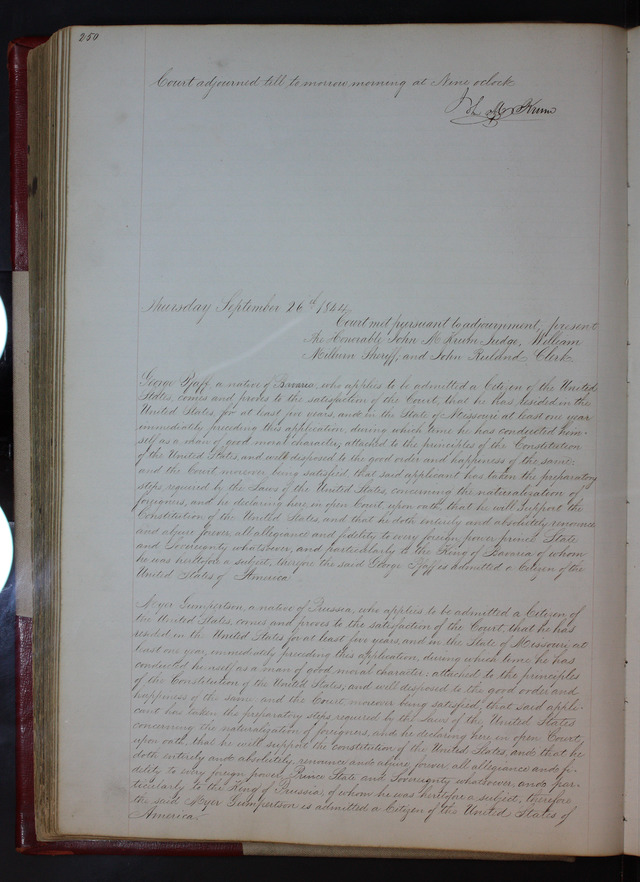 250
Court adjourned till tomorrow morning at Nine oclock
Jno M Krum
Thursday September 26th 1844.
Court met pursuant to adjournment, present
the Honorable John M Krum Judge, William
Milburn Sheriff, and John Ruland Clerk
George Pfaff, a native of Bavaria who applies to be admitted a Citizen of the United
States, comes and proves to the satisfaction of the Court, that he has resided in the
United States, for at least five years, and in the State of Missouri at least one year
immediately preceding this application, during which time he has conducted him-
self as a man of good moral character, attached to the principles of the Constitution
of the United States, and well disposed to the good order and happiness of the same,
and the Court moreover being satisfied, that said applicant has taken the preparatory
steps required by the Laws of the United States, concerning the naturalization of
foreigners, and he declaring here in open Court upon oath, that he will support the
Constitution of the United States, and that he doth entirely and absolutely renounce
and abjure forever, all allegiance and fidelity to every foreign power prince State
and Sovereignty whatsoever, and particularly to the King of Bavaria of whom
he was heretofore a subject, therefore the said George Pfaff is admitted a Citizen of the
United States of America
Meyer Gumpertson, a native of Prussia, who applies to be admitted a Citizen of
the United States, comes and proves to the satisfaction of the Court, that he has
resided in the United States for at least five years, and in the State of Missouri at
least one year, immediately preceding this application, during which time he has
conducted himself as a man of good moral character, attached to the principles
of the Constitution of the United States, and well disposed to the good order and
happiness of the same and the Court moreover being satisfied, that said appli-
cant has taken the preparatory steps required by the Laws of the United States
concerning the naturalization of foreigners, and he declaring here in open Court,
upon oath, that he will support the constitution of the United States, and that he
doth entirely and absolutely renounce and abjure forever all allegiance and fi-
delity to every foreign power, Prince State and Sovereignty whatsoever, and par-
ticularly to the King of Prussia, of whom he was heretofore a subject, therefore
the said Meyer Gumpertson is admitted a Citizen of the United States of
America.